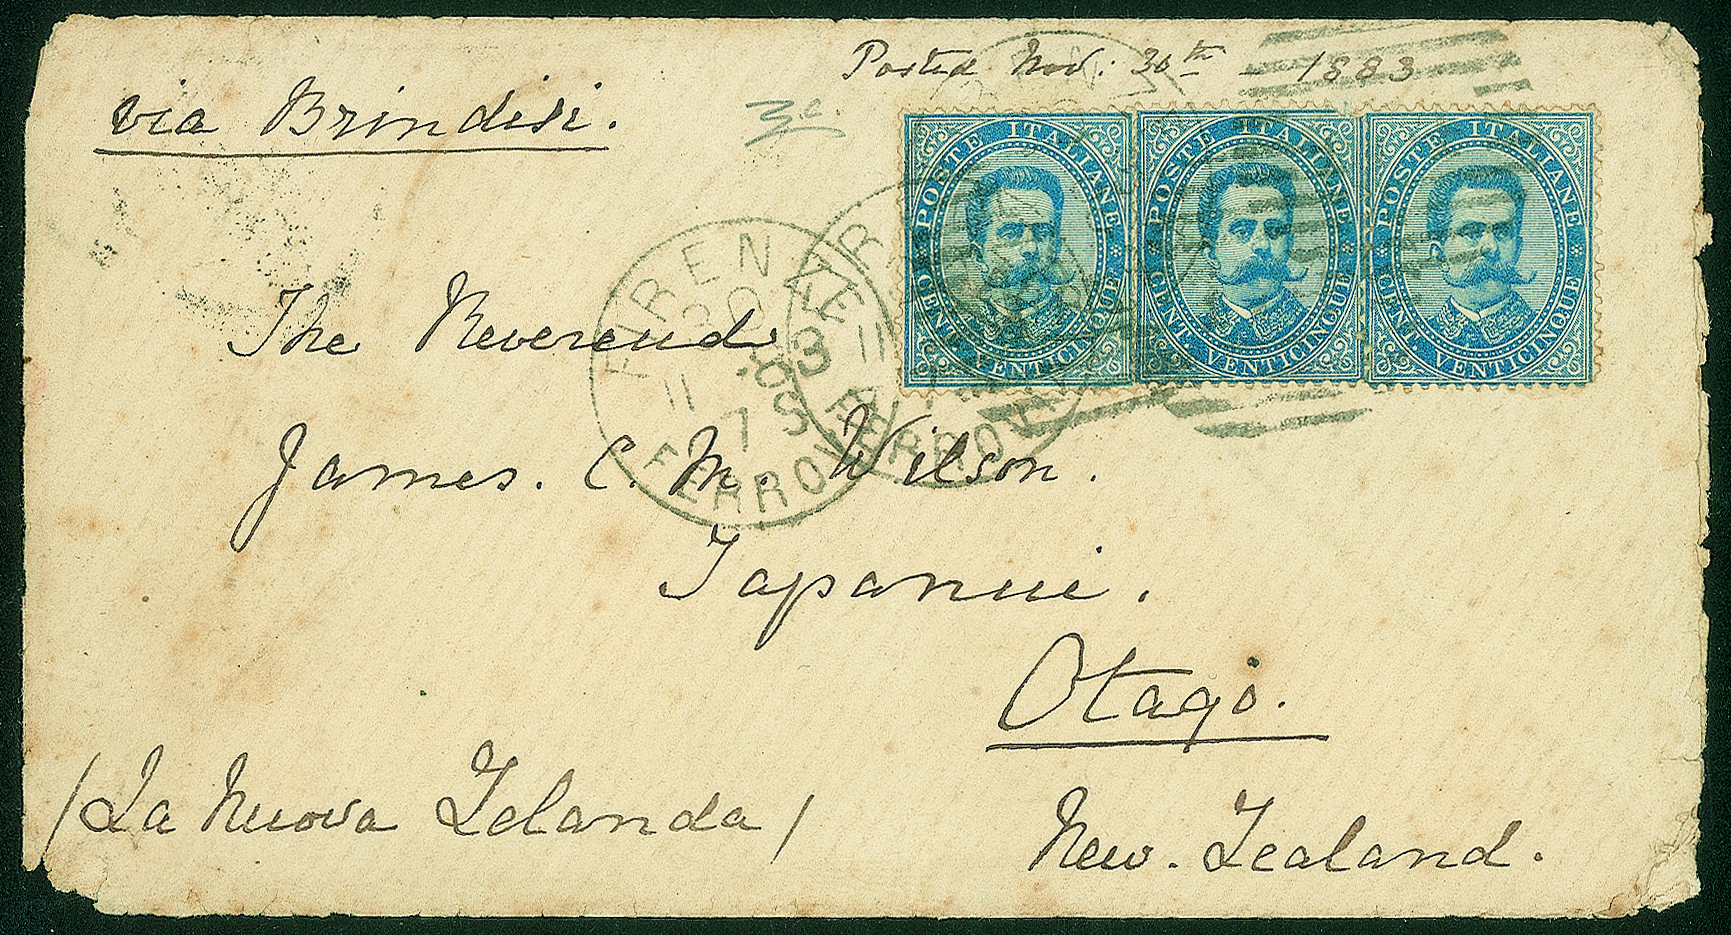 Posted Nov: 30th - 1883
via Brindisi.
3c.
POSTE ITALIANE
CENT. VENTICINQUE
POSTE ITALIANE
CENT. VENTICINQUE
POSTE ITALIANE
CENT. VENTICINQUE
FIREN
30
11 83
7 S
FERROV
FERROV
The Reverend
James. C. M. Wilson.
Tapanui.
Otago.
(La Nuova Zelanda)
New. Zealand.